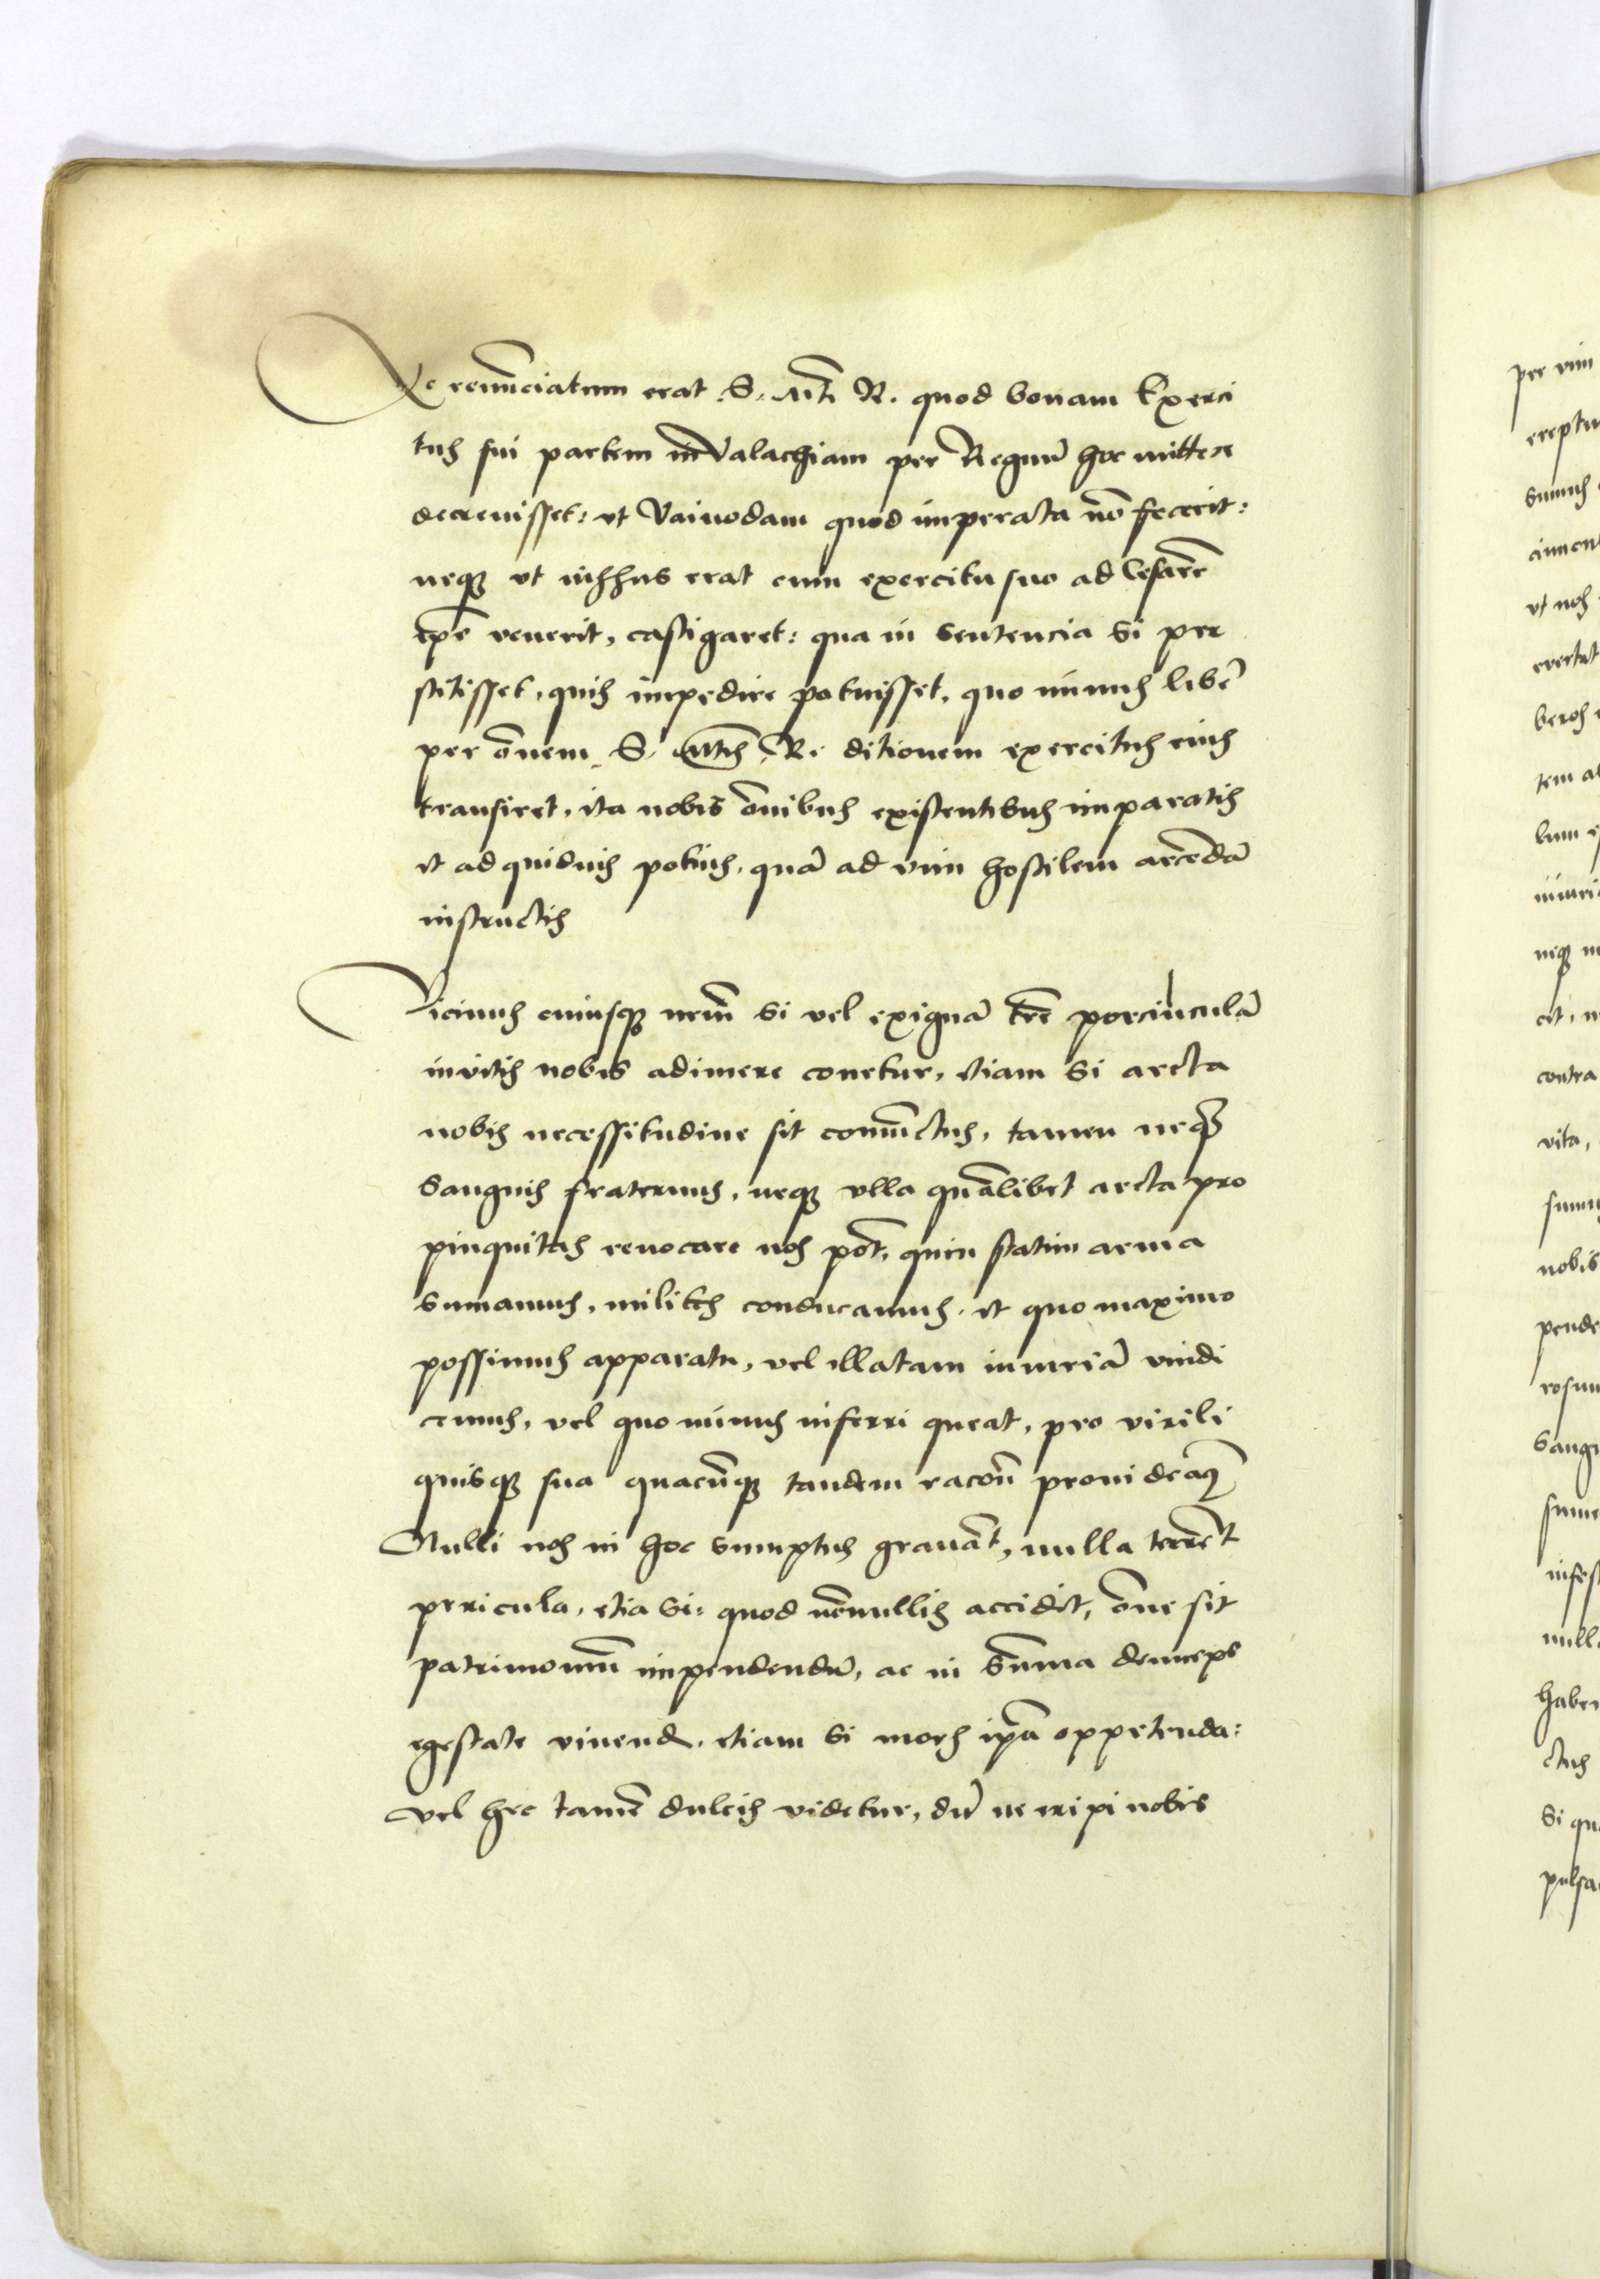 Et renu͞nciatum erat S. Mt͞i R. quod bonam Exerci
tus sui partem in Valachiam per Regnu͞ hoc mittere
decreuisset: vt Vaiuodam quod imperata no͞ fecerit:
neq3 vt iussus erat cum exercitu suo ad Cesare͞
tp͞e venerit, castigaret: qua in sentencia si per
stitisset, quis impedire potuisset, quo minus libe͞
per o͞nem S. Mt͞is R. ditionem exercitus eius
transiret, ita nobis o͞nibus existentibus imparatis
et ad quiduis potius, qua͞ ad vim hostilem arcenda͞
instructis
Vicinus cuiusq3 nr͞m si vel exigua͞ tr͞e porciuncula͞
inuitis nobis adimere conetur, etiam si arcta
nobis necessitudine sit coniu͞ctus, tamen neq3
sanguis fraternus, neq3 vlla qua͞libet arcta pro
pinquitas reuocare nos po͞t, quin statim arma
sumamus, milites conducamus, et quo maximo
possimus apparatu, vel illatam iniuria͞ vindi
cemus, vel quo minus inferri queat, pro virili
quisq3 sua quacu͞q3 tandem raco͞n prouideaq3
Nulli nos in hoc sumptus graua͞t, nulla terre͞t
pericula, etia si: quod no͞nullis accidit, o͞ne sit
patrimoniu͞ impendendu͞, ac in su͞mma deinceps
egestate viuend, etiam si mors ip͞a oppetenda:
vel hec tame͞ dulcis videtur, du͞ ne eripi nobis
per vim
sumus
vt nos
tem
lum
neq3
contra
vita,
nobis
pende